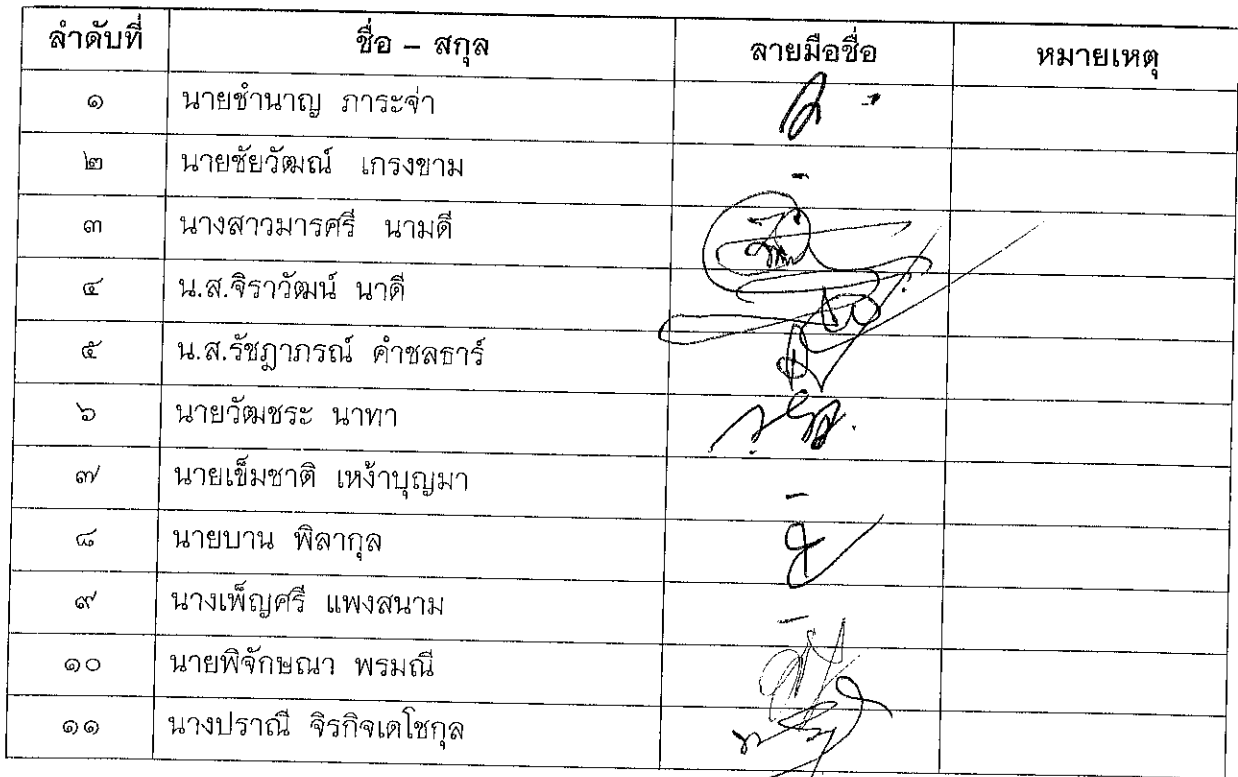 ลำดับที่ ชื่อ – สกุล ลายมือชื่อ หมายเหตุ
๑ นายชำนาญ ภาระจ่า
๒ นายชัยวัฒณ์ เกรงขาม -
๓ นางสาวมารศรี นามดี
๔ น.ส.จิราวัฒน์ นาดี
๕ น.ส.รัชฎาภรณ์ คำชลธาร์
๖ นายวัฒชระ นาทา
๗ นายเข็มชาติ เหง้าบุญมา -
๘ นายบาน พิลากุล
๙ นางเพ็ญศรี แพงสนาม -
๑๐ นายพิจักษณา พรมณี
๑๑ นางปราณี จิรกิจเดโชกุล